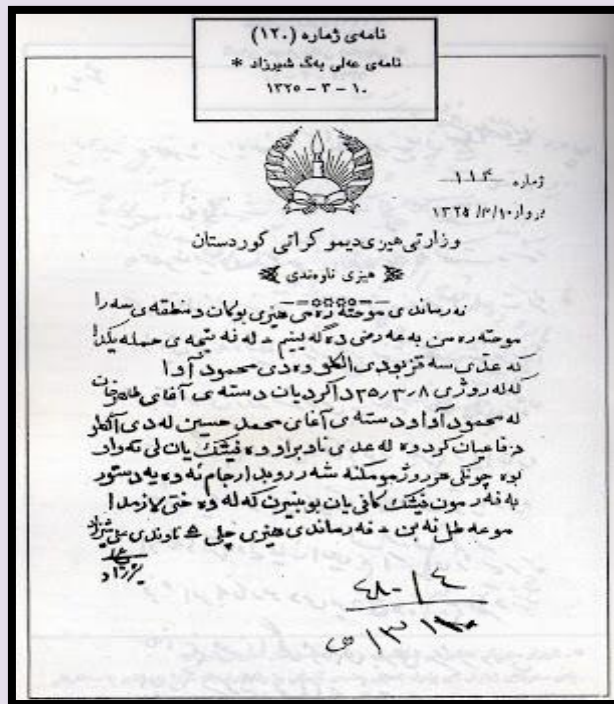 نامەی ژمارە (١٢٠)
نامەی عەلی بەگ شیرزاد *
١٠ – ٣ – ١٣٢٥
ژمارە ١١٤
بروار ١٣٢٥/٣/١٠
وزارتی هیزی دیموکراتی کوردستان
هیزی ناوەندی
فەرماندەی موحتەرەمی هیزی بوکان و منطقەی سەرا
موحتەرەمن بە عەرضی دەگەیینم لە نەتیجەی حملە یکدا
کە عدەی سەقز بو دی الکلو وە دی محمود آوا
کە لە روژی ٢٥/٣/٨ دا کردیان دستەی آغای طاهرخان
لە محمود آوا و دستەی آغای محمد حسین لە دی آلکلو
دفاعیان کرد وە لە عدەی ناوبراو وە فیشک یان لی تەواو
بوە چونکی هەر روژ مومکنە شەر رو بدا رجام ئەوەیە دستور
بفەرمون فیشک کافی یان بو بنیرن کە لە وەختی لازمدا
موعەطل نەبن فەرماندەی هیزی ناوندی علی شیرزاد
٤٨٠/٤
٣/١٠